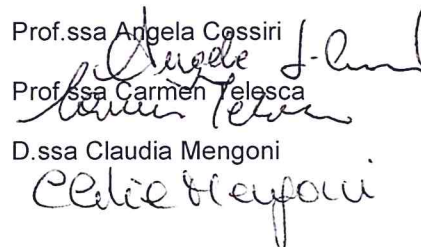 Prof.ssa Angela Cossiri
Angela
Prof.ssa Carmen Telesca
Carmen Telesca
D.ssa Claudia Mengoni
Claudia Mengoni